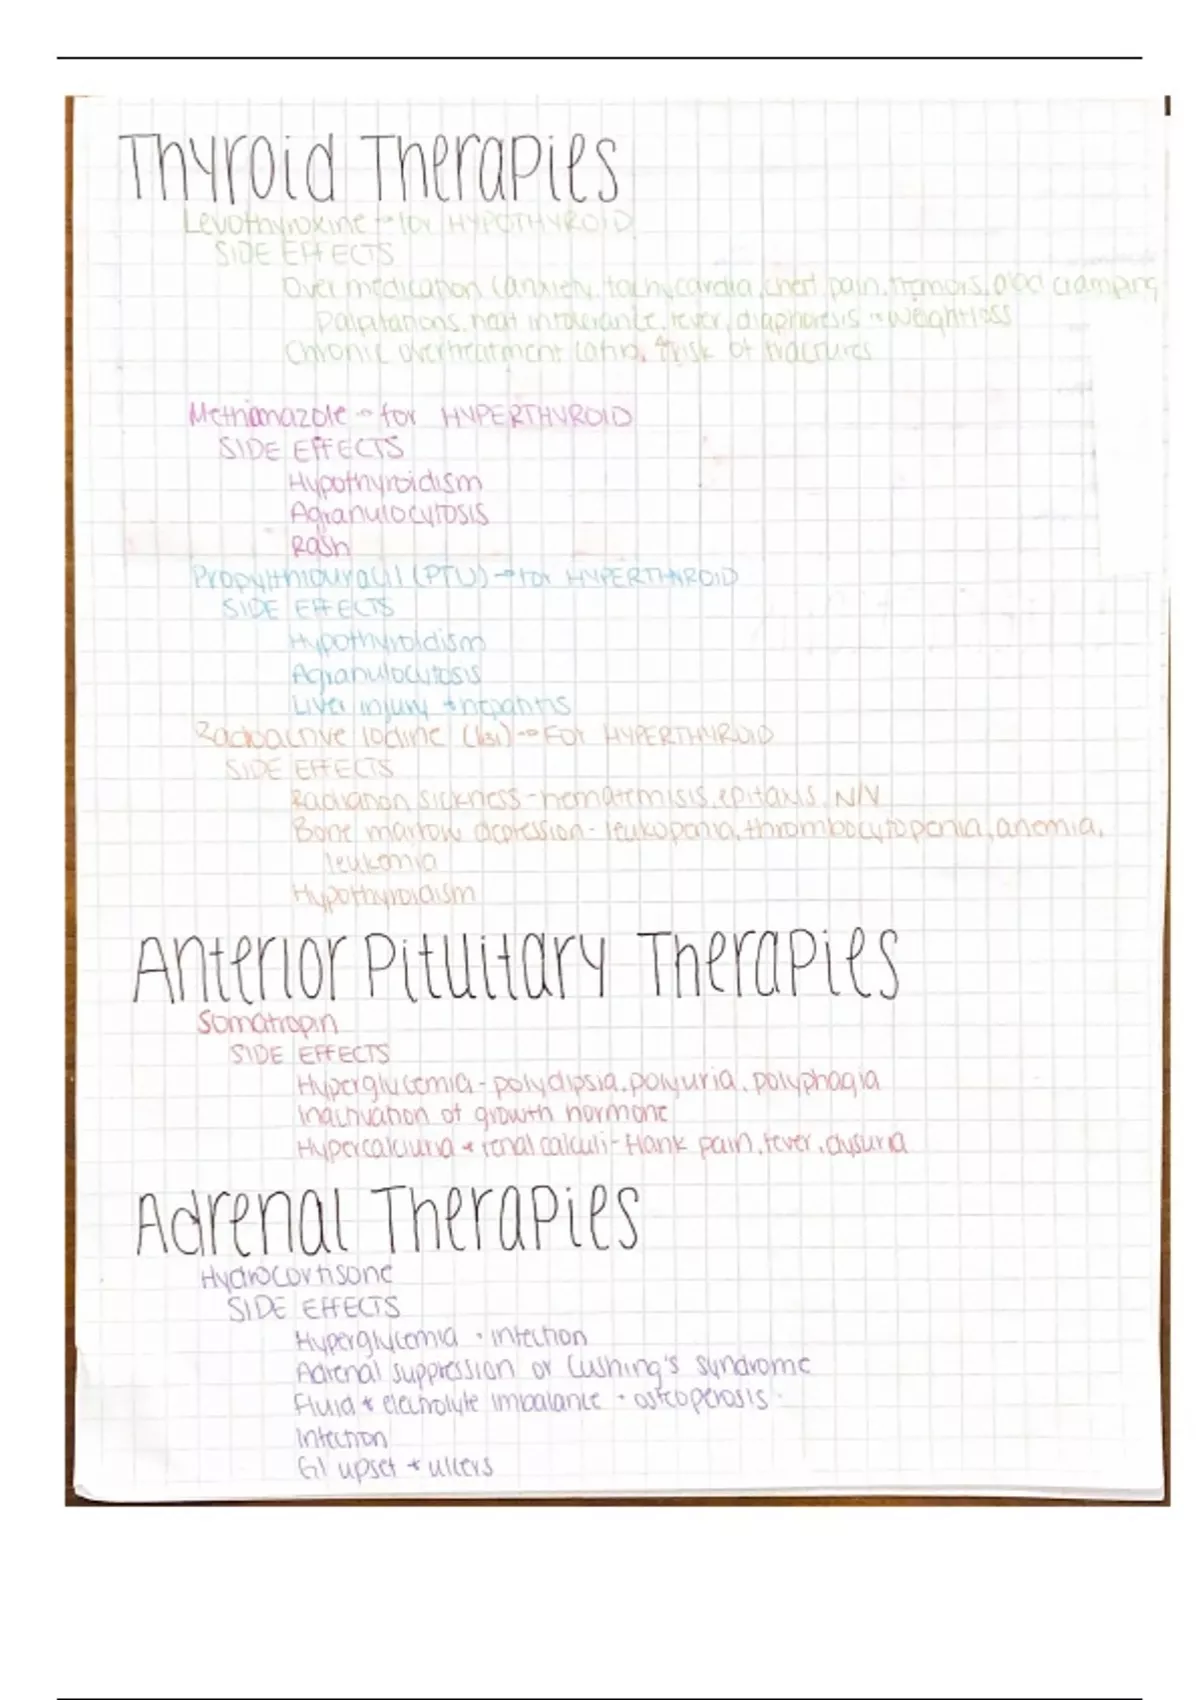 Thyroid Therapies
Levothyroxine → for HYPOTHYROID
SIDE EFFECTS
Overmedication (anxiety, tachycardia, chest pain, tremors, abd cramping
palpitations, heat intolerance, fever, diaphoresis + weightloss
Chronic overtreatment (afib, ↑risk of fractures
Methimazole → for HYPERTHYROID
SIDE EFFECTS
Hypothyroidism
Agranulocytosis
Rash
Propylthiouracil (PTU) → for HYPERTHYROID
SIDE EFFECTS
Hypothyroidism
Agranulocytosis
Liver injury + hepatitis
Radioactive Iodine (131) → FOR HYPERTHYROID
SIDE EFFECTS
Radiation sickness - hematemisis, epitaxis, N/V
Bone marrow depression - leukopenia, thrombocytopenia, anemia,
leukemia
Hypothyroidism
Anterior Pituitary Therapies
Somatropin
SIDE EFFECTS
Hyperglycemia - polydipsia, polyuria, polyphagia
Inactivation of growth hormone
Hypercalciuria + renal calculi - flank pain, fever, dysuria
Adrenal Therapies
Hydrocortisone
SIDE EFFECTS
Hyperglycemia · infection
Adrenal suppression or Cushing's syndrome
Fluid + electrolyte imbalance · osteoperosis
Infection
GI upset + ulcers